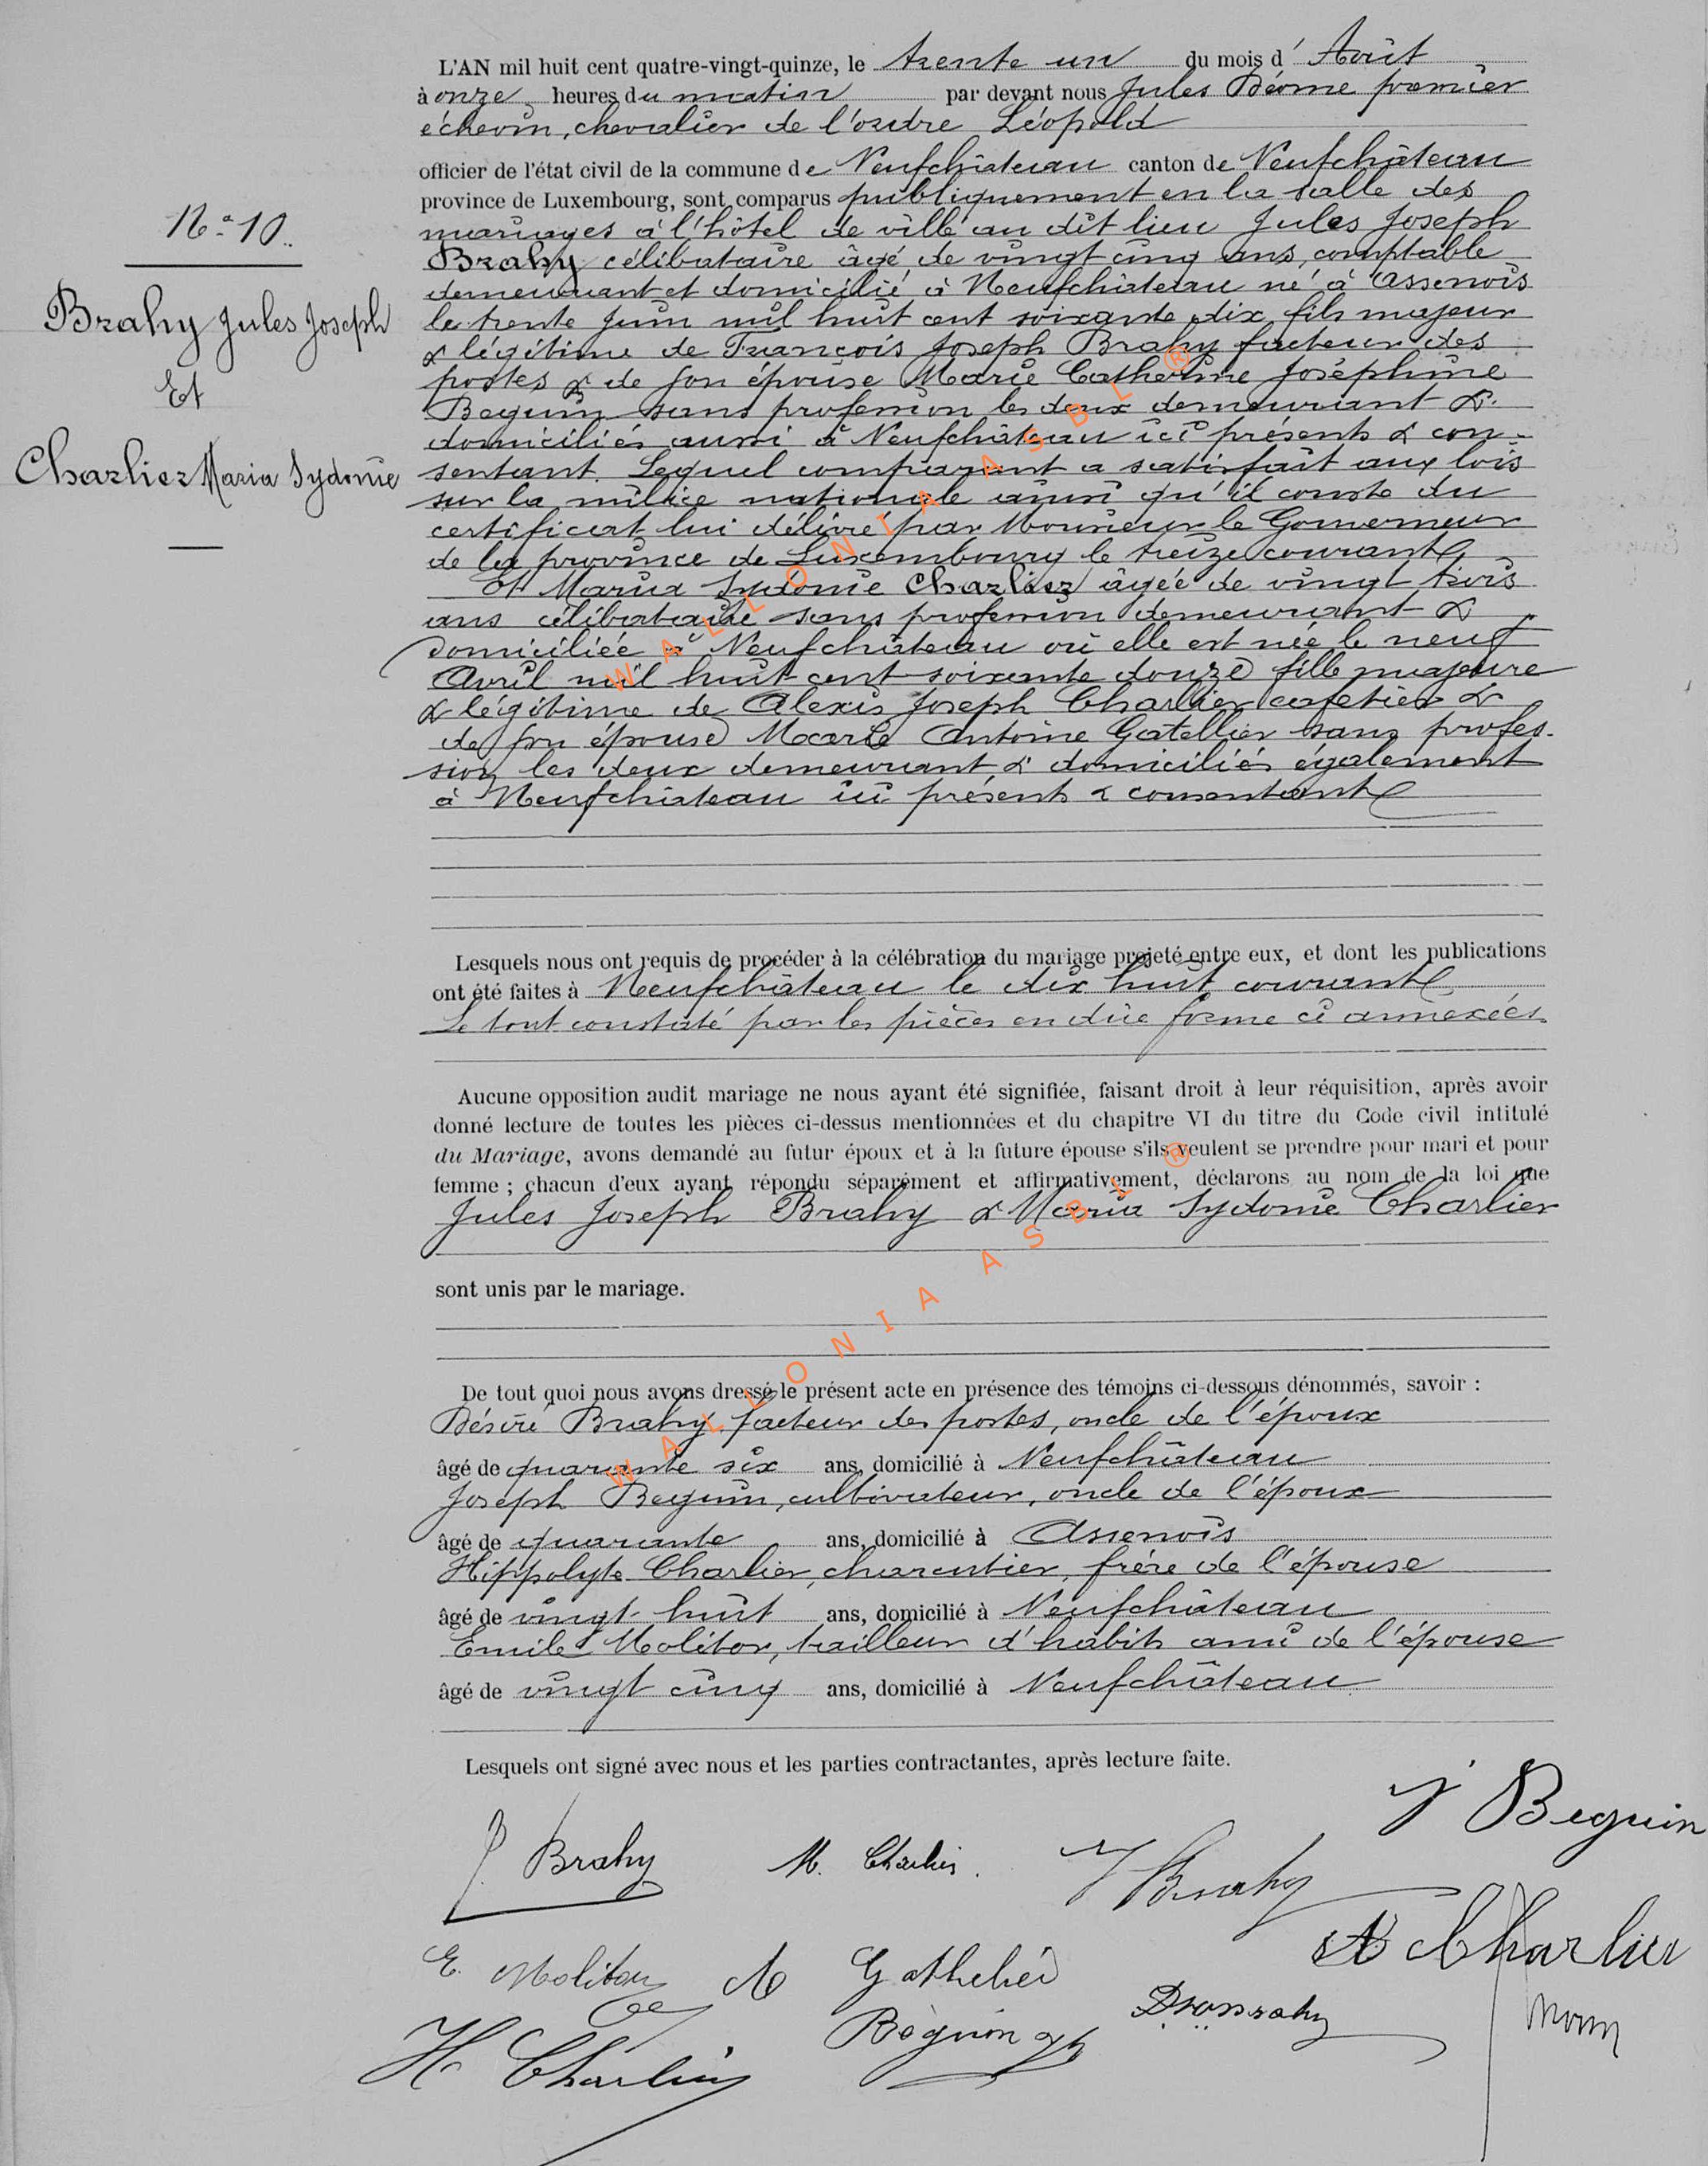 L'AN mil huit cent quatre-vingt-quinze, le trente un du mois d' Août
à onze heures du matin par devant nous Jules Déome premier
échevin, chevalier de l'ordre Léopold
officier de l'état civil de la commune de Neufchâteau canton de Neufchâteau
province de Luxembourg, sont comparus publiquement en la salle des
mariages à l'hôtel de ville au dit lieu Jules Joseph
Brahy célibataire âgé de vingt cinq ans, comptable
demeurant et domicilié à Neufchâteau né à Assenois
le trente Juin mil huit cent soixante dix, fils majeur
& légitime de François Joseph Brahy facteur des
postes & de son épouse Marie Catherine Joséphine
Beguin sans profession les deux demeurant &
domiciliés aussi à Neufchâteau ici présents & con-
sentant. Lequel comparant a satisfait aux lois
sur la milice nationale ainsi qu'il conste du
certificat lui délivré par Monsieur le Gouverneur
de la province de Luxembourg le treize courant
Et Maria Sydonie Charlier âgée de vingt trois
ans célibataire sans profession demeurant &
domiciliée à Neufchâteau où elle est née le neuf
Avril mil huit cent soixante douze fille majeure
& légitime de Alexis Joseph Charlier cafetier &
de son épouse Marie Antoine Gatellier sans profes-
sion les deux demeurant & domiciliés également
à Neufchâteau ici présents & consentant
N° 10.
Brahy Jules Joseph
Et
Charlier Maria Sydonie
Lesquels nous ont requis de procéder à la célébration du mariage projeté entre eux, et dont les publications
ont été faites à Neufchâteau le dix huit courant
Le tout constaté par les pièces en due forme ci annexées
Aucune opposition audit mariage ne nous ayant été signifiée, faisant droit à leur réquisition, après avoir
donné lecture de toutes les pièces ci-dessus mentionnées et du chapitre VI du titre du Code civil intitulé
du Mariage, avons demandé au futur époux et à la future épouse s'ils veulent se prendre pour mari et pour
femme ; chacun d'eux ayant répondu séparément et affirmativement, déclarons au nom de la loi que
Jules Joseph Brahy & Maria Sydonie Charlier
sont unis par le mariage.
De tout quoi nous avons dressé le présent acte en présence des témoins ci-dessous dénommés, savoir :
Désiré Brahy facteur des postes, oncle de l'époux
âgé de quarante six ans, domicilié à Neufchâteau
Joseph Beguin, cultivateur, oncle de l'époux
âgé de quarante ans, domicilié à Assenois
Hippolyte Charlier, charcutier, frère de l'épouse
âgé de vingt-huit ans, domicilié à Neufchâteau
Emile Molitor, tailleur d'habits ami de l'épouse
âgé de vingt cinq ans, domicilié à Neufchâteau
Lesquels ont signé avec nous et les parties contractantes, après lecture faite.
J Beguin
J. Brahy M. Charlier. J Brahy
A Charlier
E. Molitor M Gathelier
Béguin
H Charlier
WALLONIA ASBL ®
WALLONIA ASBL ®